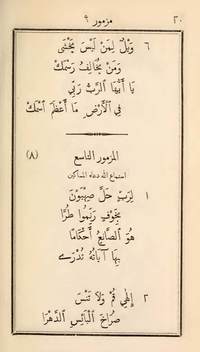 ٢٠ مزمور ٩
٦ وَيْلٌ لِمَنْ لَيْسَ يَخْشَى
وَمَنْ يُخَالِفُ رَسْمَكْ
يَا أَيُّهَا الرَّبُّ رَبِّي
فِي الْأَرْضِ مَا أَعْظَمَ اسْمَكْ
المزمور التاسع (٨)
استماع الله دعاء المساكين
١ لِرَبِّ حَلَّ صِهْيَوْنَ
بِخَوْفٍ رَنِّمُوا طُرًّا
هُوَ الصَّانِعُ أَحْكَامًا
بِهَا آيَاتُهُ تُدْرَى
٢ إِلٰهِي قُمْ وَلَا تَنْسَ
صُرَاخَ الْبَائِسِ الدَّهْرَا